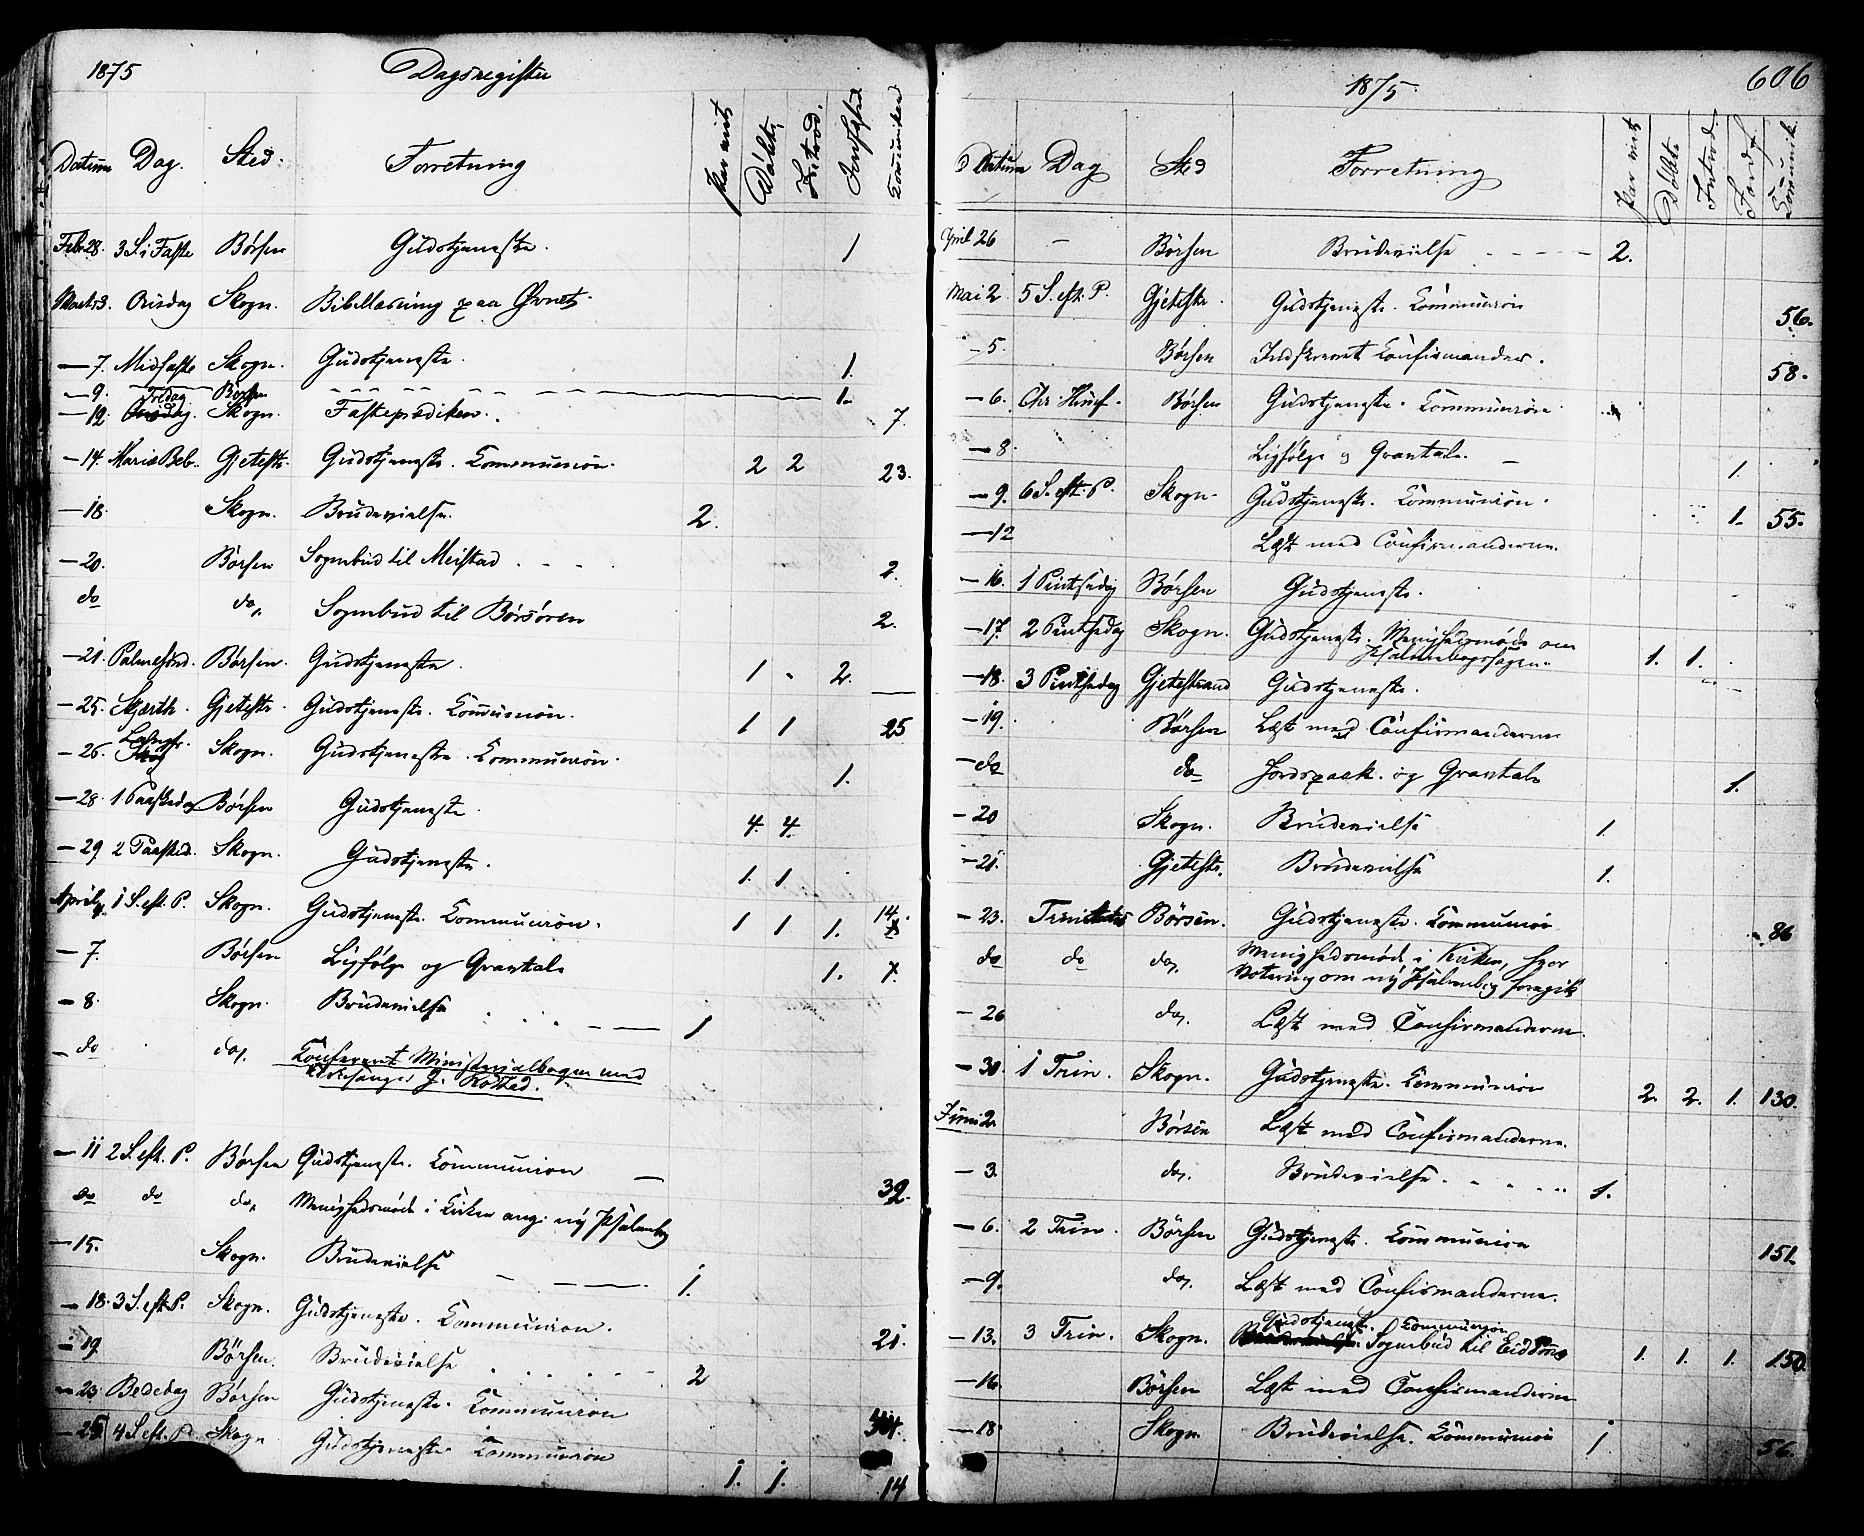 1875 Dagsregister
Datum Dag. Sted. Forretning Par viet Døbte Introd. Jordfæst Communiken
Febr 28. 3 S. i Faste Børsen Gudstjeneste. 1
Marts 3. Onsdag Skogn. Bibellæsning paa Øvnet.
— 7. Midfaste Skogn. Gudstjeneste. 1.
— 9. Børsen 1.
— 12. Fredag Skogn. Fasteprædiken. 7.
— 14. Mariæ Beb. Gjetestr. Gudstjeneste. Communion. 2 2 23.
— 18. Skogn. Brudevielse. 2.
— 20. Børsen Sognebud til Meistad 2.
do do. Sognebud til Børsøren 2.
— 21. Palmesønd. Børsen. Gudstjeneste. 1 2.
— 25. Skjærth. Gjetestr. Gudstjeneste. Communion. 1 1 25
— 26. Langfr. Skogn. Gudstjeneste. Communion. 1.
— 28. 1 Paaskedag Børsen Gudstjeneste. 4. 4.
— 29 2 Paasked. Skogn. Gudstjeneste. 1. 1
April 4. 1 S. eft. P. Skogn. Gudstjeneste. Communion. 1 1 1. 14.
— 7. Børsen Ligfølge og Gravtale 1. 7.
— 8. Skogn. Brudevielse 1
— do do. Confereret Ministerialbogen med
Kirkesanger J. Rostad.
— 11 2 S. eft. P. Børsen Gudstjeneste. Communion — 32.
do do do. Menighedsmøde i Kirken ang. ny Psalmebog
— 15. Skogn. Brudevielse 1.
— 18. 3 S. eft P. Skogn. Gudstjeneste. Communion. 21.
— 19 Børsen. Brudevielse 2
— 23. Bededag Børsen Gudstjeneste. Communion
— 25 4 S. eft. P. Skogn Gudstjeneste Communion 1. 1. 14
1875. 606
Datum Dag Sted Forretning Par viet Døbte Introd Jordf Communik.
April 26 — Børsen Brudevielse 2.
Mai 2. 5 S. eft. P. Gjetestr. Gudstjeneste. Communion 56.
— 5. Børsen Indskrevet Confirmander. 58.
— 6. Chr. Himf. Børsen Gudstjeneste. Communion
— 8. Ligfølge og Gravtale. 1.
— 9. 6 S. eft. P. Skogn. Gudstjeneste. Communion. 1. 55.
— 12 Læst med Confirmanderne.
— 16. 1 Pintsedag Børsen Gudstjeneste.
— 17. 2 Pintsedag Skogn. Gudstjeneste. Menighedsmøde om
Psalmebogssagen. 1. 1.
— 18. 3 Pintsedag Gjetestrand Gudstjeneste.
— 19. Børsen Læst med Confirmanderne
— do do Jordspaak. og Gravtale 1.
— 20 Skogn. Brudevielse 1.
— 21. Gjetestr. Brudevielse 1.
— 23. Trinitatis Børsen. Gudstjeneste. Communion 86
do do do. Menighedsmøde i Kirken, hvor
Votering om ny Psalmebog foregik
— 26 do. Læst med Confirmanderne.
— 30. 1 Trin. Skogn. Gudstjeneste. Communion 2. 2. 1. 130.
Juni 2. Børsen Læst med Confirmanderne.
— 3. do. Brudevielse. 1.
— 6. 2 Trin. Børsen Gudstjeneste. Communion 151.
— 9. do. Læst med Confirmanderne.
Gudstjenest. Communion
— 13. 3 Trin. Skogn. Sognebud til 1. 1. 1. 150.
— 16. Børsen Læst med Confirmanderne
— 18. Skogn. Brudevielse. Communion 1. 56.